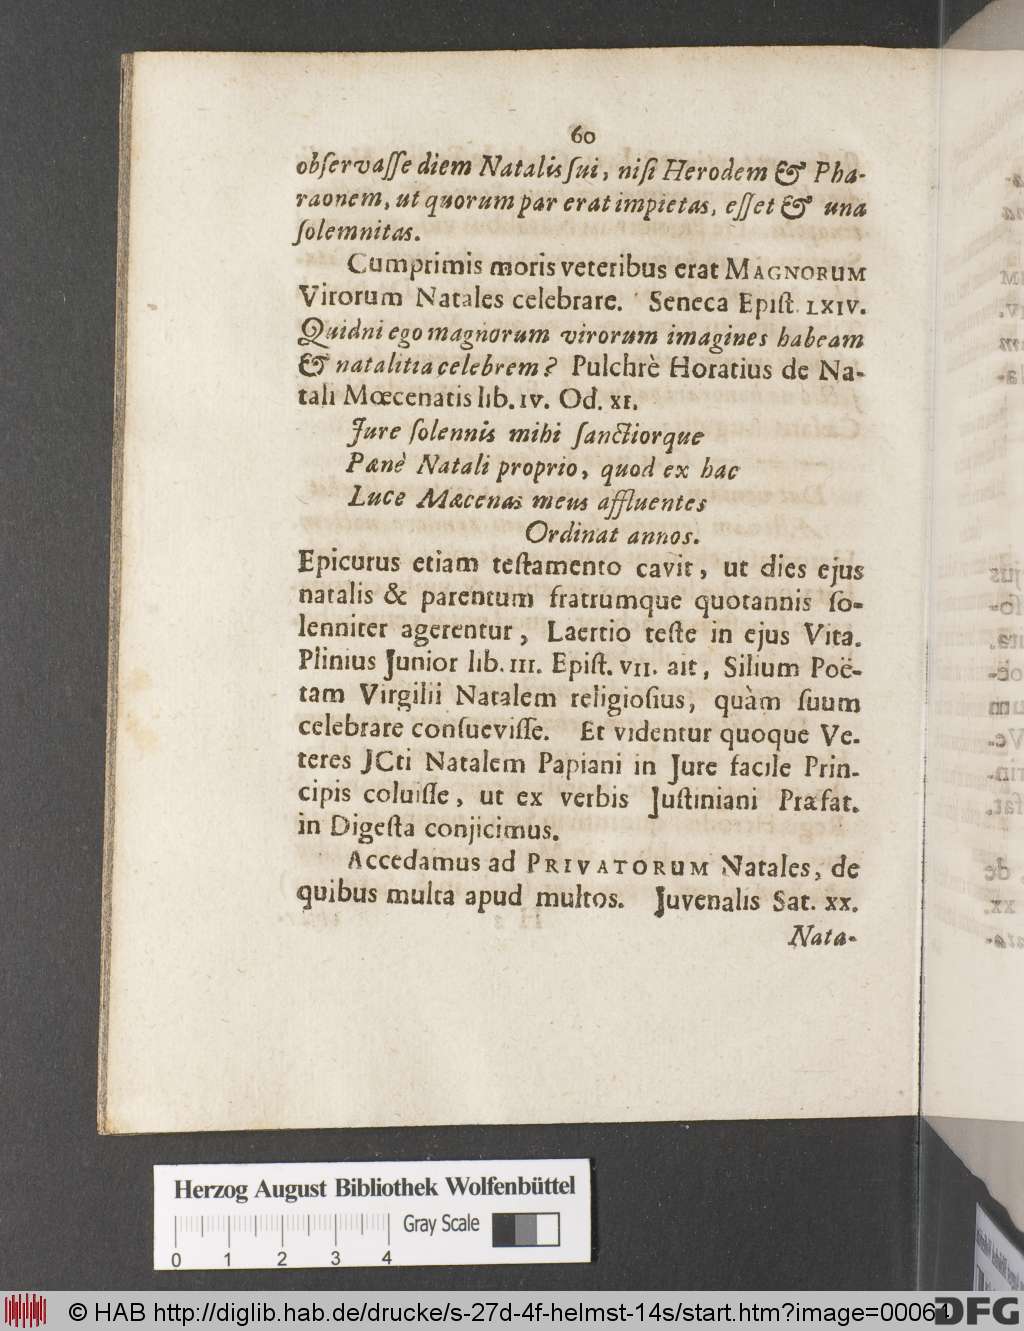 60
obſervaſſe diem Natalis ſui, niſi Herodem & Pha-
raonem, ut quorum par erat impietas, eſſet & una
ſolemnitas.
Cumprimis moris veteribus erat MAGNORUM
Virorum Natales celebrare. Seneca Epiſt. LXIV.
Quidni ego magnorum virorum imagines habeam
& natalitia celebrem? Pulchrè Horatius de Na-
tali Mœcenatis lib. IV. Od. XI.
Jure ſolennis mihi ſanctiorque
Pænè Natali proprio, quod ex hac
Luce Mæcenas meus affluentes
Ordinat annos.
Epicurus etiam teſtamento cavit, ut dies ejus
natalis & parentum fratrumque quotannis ſo-
lenniter agerentur, Laertio teſte in ejus Vita.
Plinius Junior lib. III. Epiſt. VII. ait, Silium Poë-
tam Virgilii Natalem religioſius, quàm ſuum
celebrare conſueviſſe. Et videntur quoque Ve-
teres JCti Natalem Papiani in Jure facile Prin-
cipis coluiſſe, ut ex verbis Juſtiniani Præfat.
in Digeſta conjicimus.
Accedamus ad PRIVATORUM Natales, de
quibus multa apud multos. Juvenalis Sat. XX.
Nata-
Herzog August Bibliothek Wolfenbüttel
Gray Scale
0 1 2 3 4
© HAB http://diglib.hab.de/drucke/s-27d-4f-helmst-14s/start.htm?image=00064
DFG